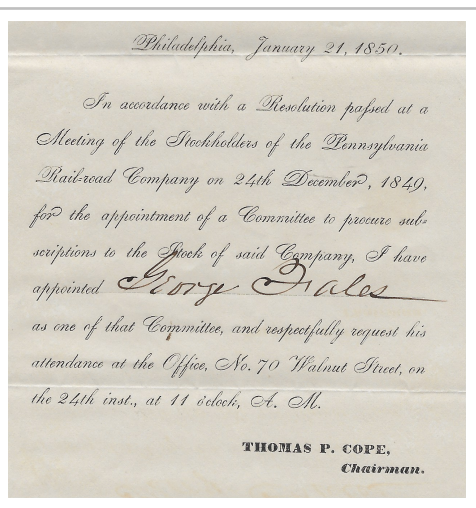 Philadelphia, January 21, 1850.
In accordance with a Resolution passed at a
Meeting of the Stockholders of the Pennsylvania
Rail-road Company on 24th December, 1849,
for the appointment of a Committee to procure sub-
scriptions to the Stock of said Company, I have
appointed George Fales
as one of that Committee, and respectfully request his
attendance at the Office, No. 70 Walnut Street, on
the 24th inst., at 11 o'clock, A. M.
THOMAS P. COPE,
Chairman.